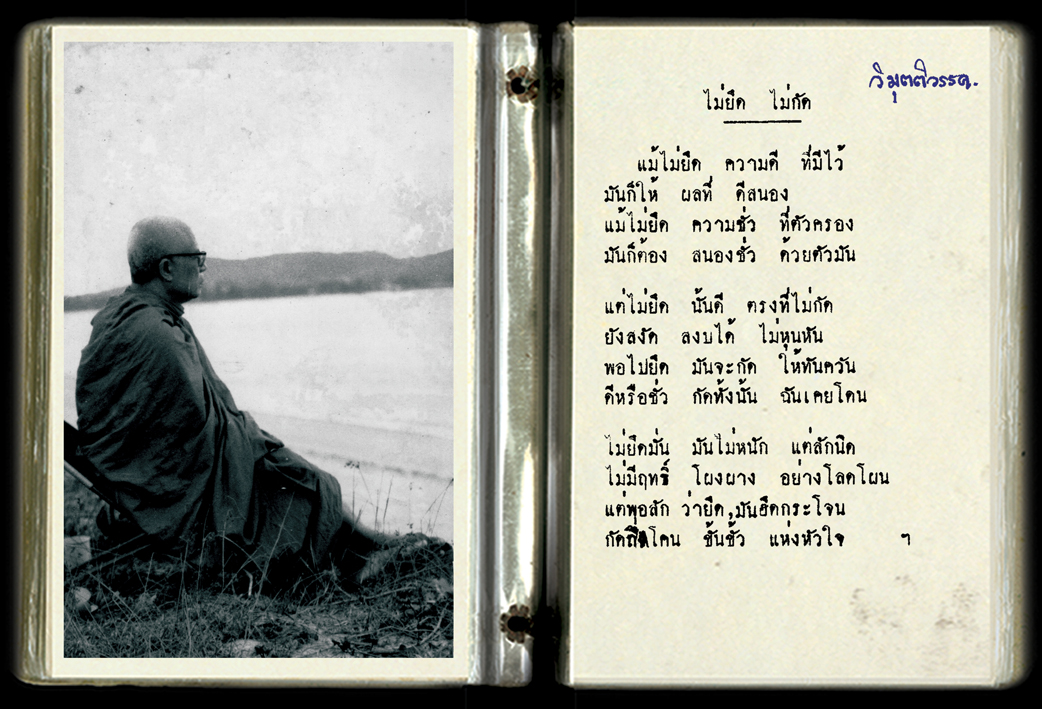 วิมุตติวรรค.
ไม่ยึด ไม่กัด
แม้ไม่ยึด ความดี ที่มีไว้
มันก็ให้ ผลที่ ดีสนอง
แม้ไม่ยึด ความชั่ว ที่ตัวครอง
มันก็ต้อง สนองชั่ว ด้วยตัวมัน
แต่ไม่ยึด นั้นดี ตรงที่ไม่กัด
ยังสงัด สงบได้ ไม่หุนหัน
พอไปยึด มันจะกัด ให้ทันควัน
ดีหรือชั่ว กัดทั้งนั้น ฉันเคยโดน
ไม่ยึดมั่น มันไม่หนัก แต่สักนิด
ไม่มีฤทธิ์ โผงผาง อย่างโลดโผน
แต่พอสัก ว่ายึด, มันฮึดกระโจน
กัดโดน ขั้นขั้ว แห่งหัวใจ ฯ